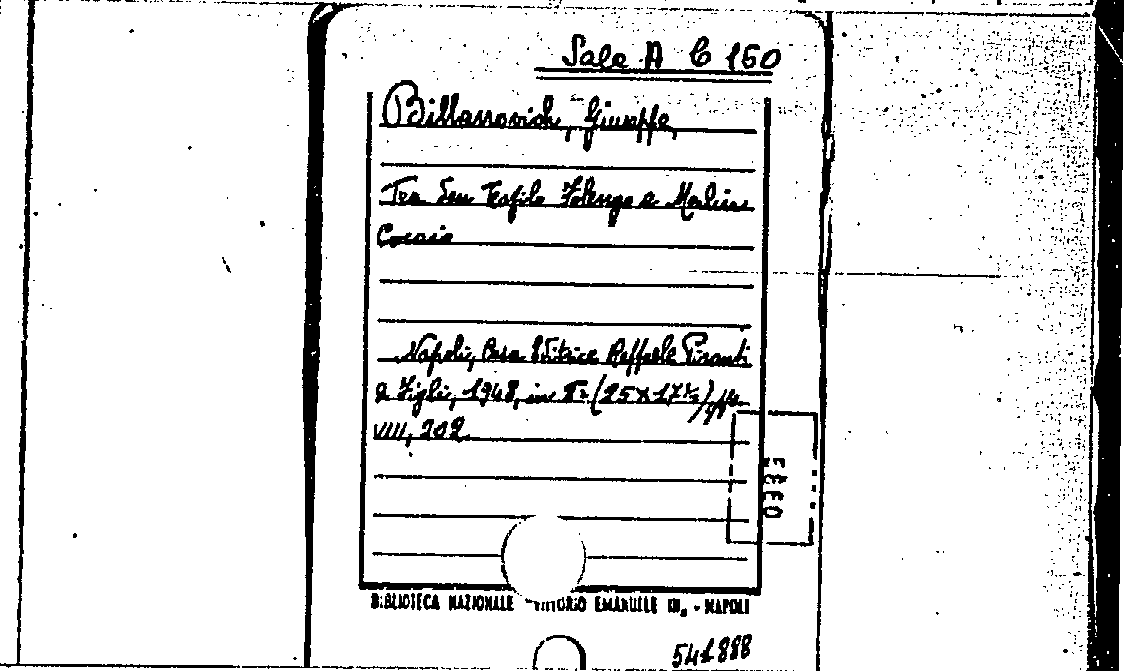 Sala A C 150
Billanovich, Giuseppe,
Tra Don Teofilo Folengo e Merlino
Cocaio
Napoli, Casa Editrice Raffaele Pironti
e Figli, 1948, in 8º (25 x 17½) pp.
VIII, 202.
BIBLIOTECA NAZIONALE VITTORIO EMANUELE III, - NAPOLI
541888